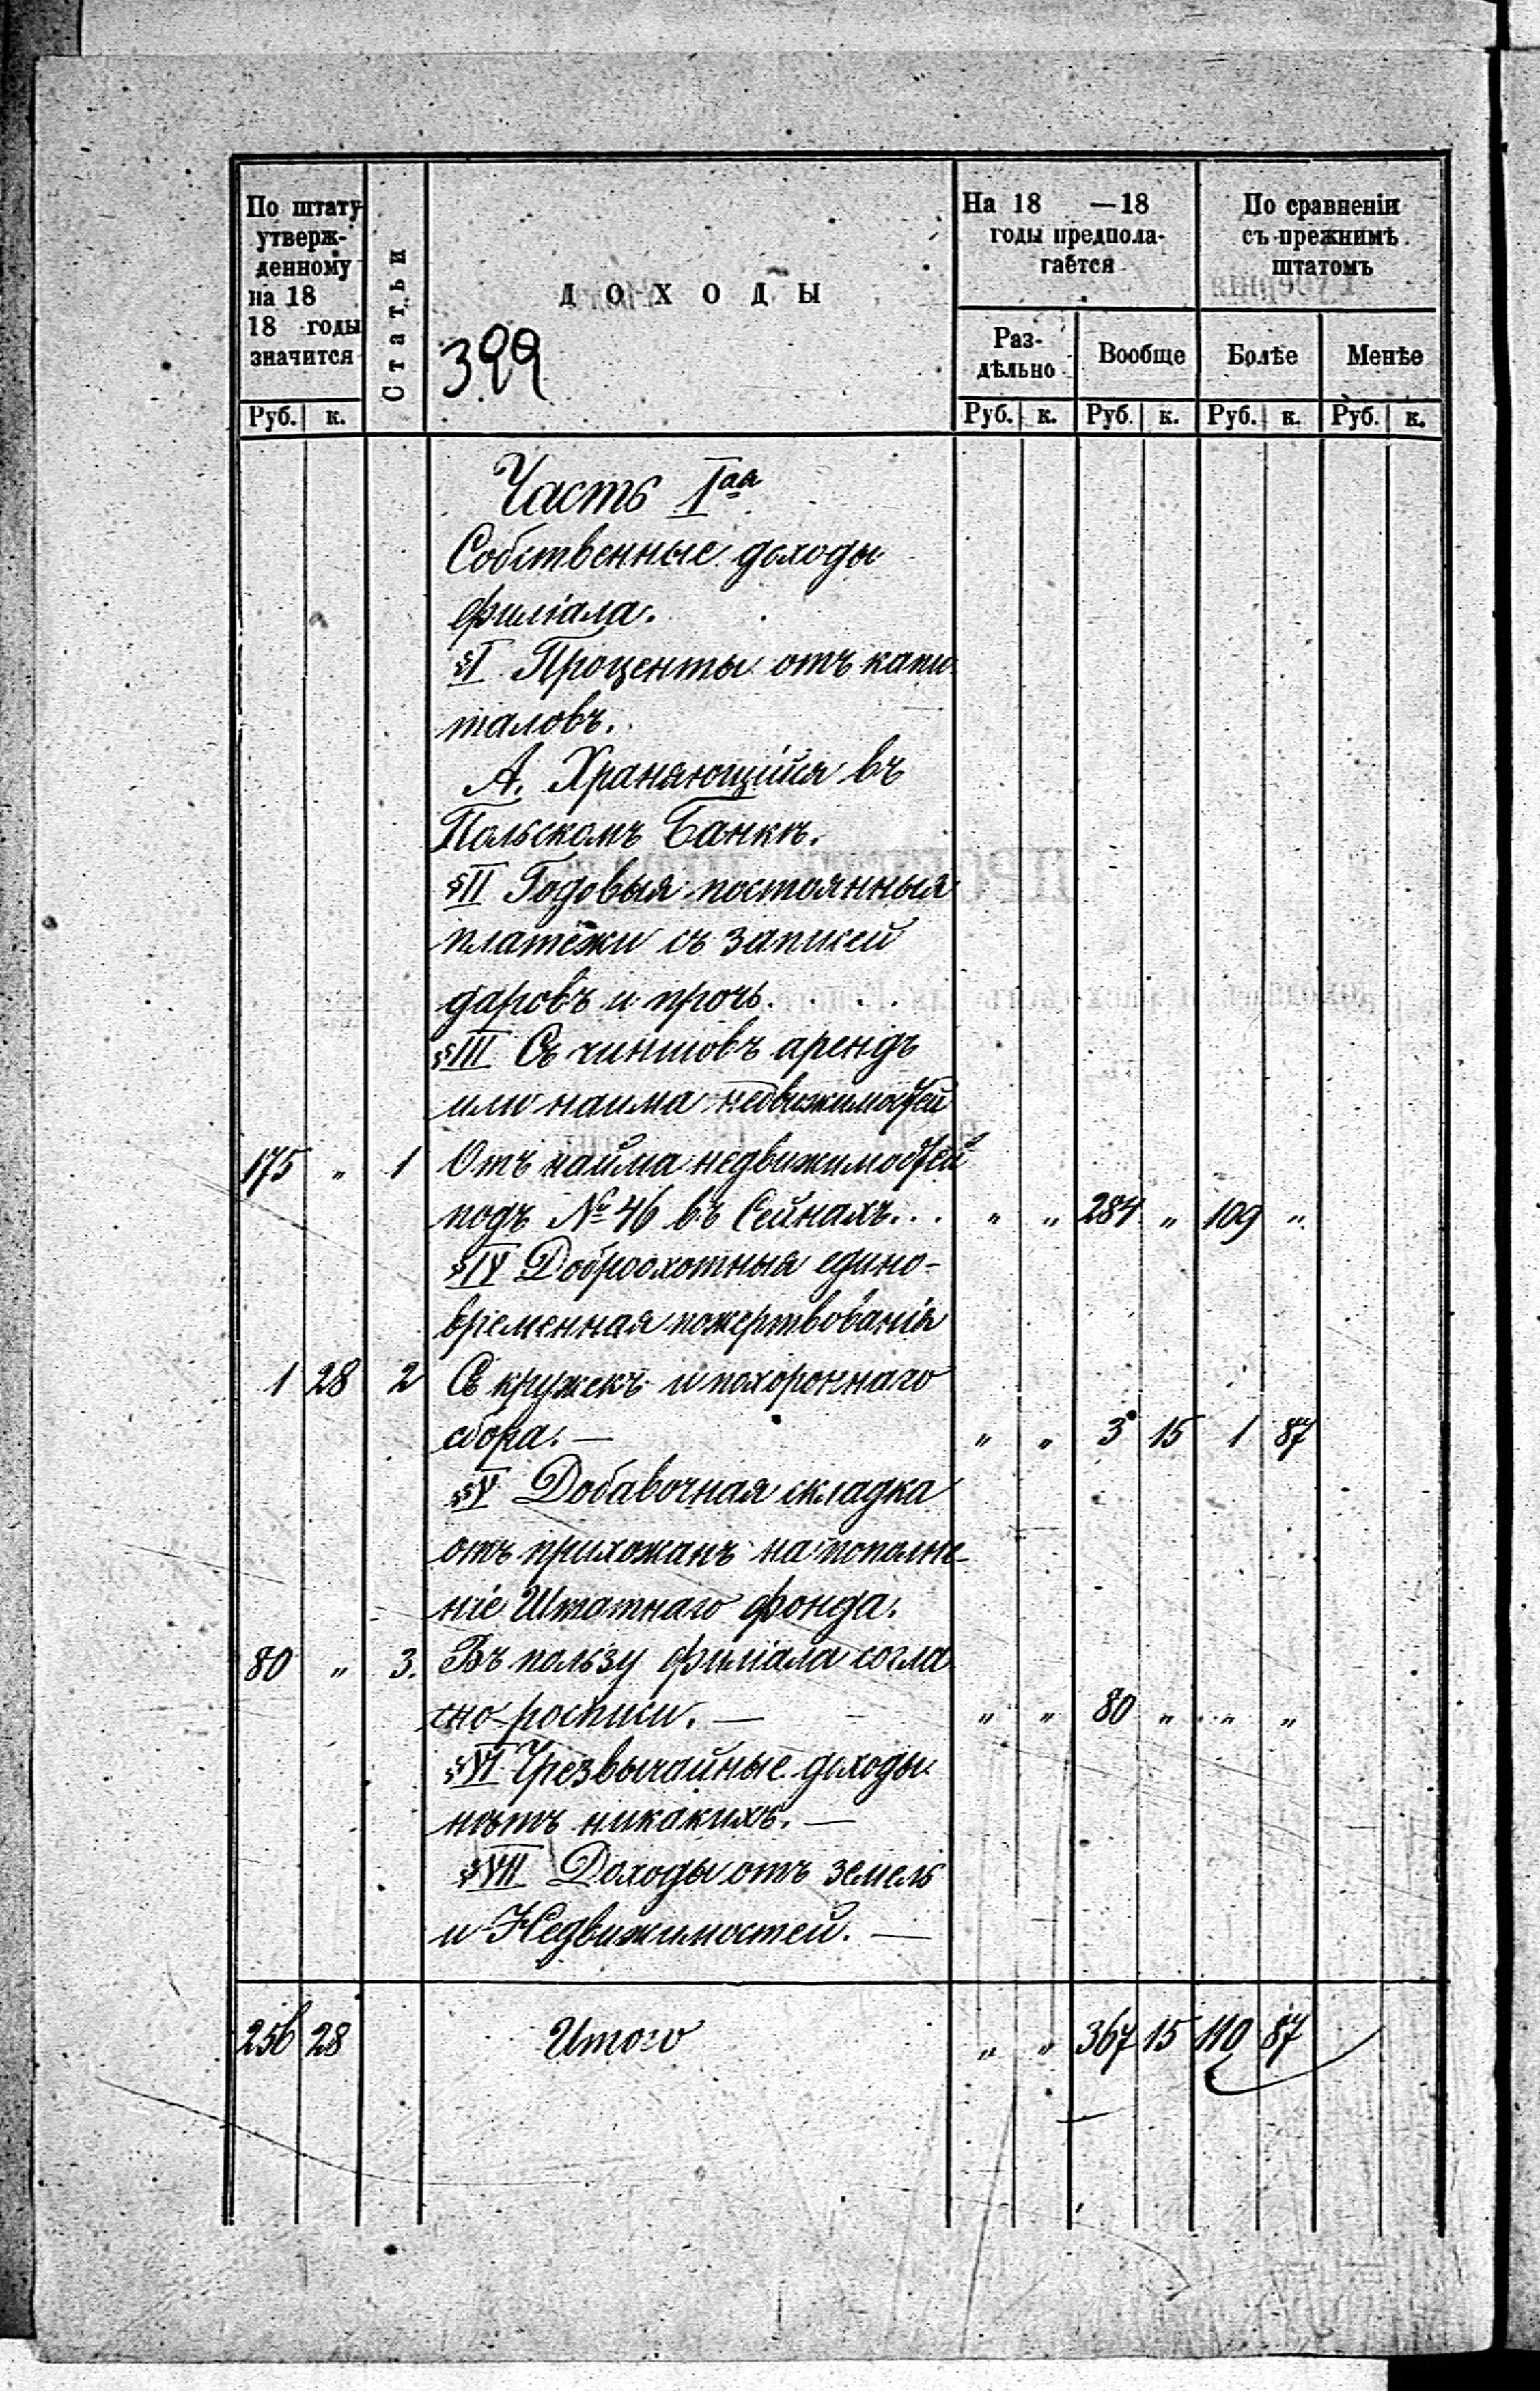 По штату утверж- денному на 18 18 годы значится
Статьи
ДОХОДЫ
На 18 —18 годы предпола- гается
По сравненiи съ прежнимъ штатомъ
Раз- дѣльно
Вообще
Болѣе
Менѣе
Руб. к. Руб. к. Руб. к. Руб. к. Руб. к.
399
Часть I ая
Собственные доходы
филiала.
§I Проценты отъ капи
таловъ.
А. Храняющiйся въ
Польскомъ Банкѣ.
§II Годовыя постоянныя
платежи съ записей
даровъ и прочь. . . .
§III Съ чиншовъ арендъ
или наима недвижимостей
175 „ 1 Отъ найма недвижимостей
подъ № 46 въ Сейнахъ... „ „ 284 „ 109 „
§IV Доброохотныя едино-
временная пожертвованiя
1 28 2 Съ кружекъ и похороннаго
сбора. — „ „ 3 15 1 87
§V Добавочная складка
отъ прихожанъ на пополне-
нiе Штатнаго фонда.
80 „ 3. Въ пользу филiала согла
сно росписи. — „ „ 80 „ „ „
§VI Чрезвычайные доходы
нѣтъ никакихъ. —
§VII Доходы отъ земель
и Недвижимостей. —
256 28 Итого „ „ 367 15 110 87